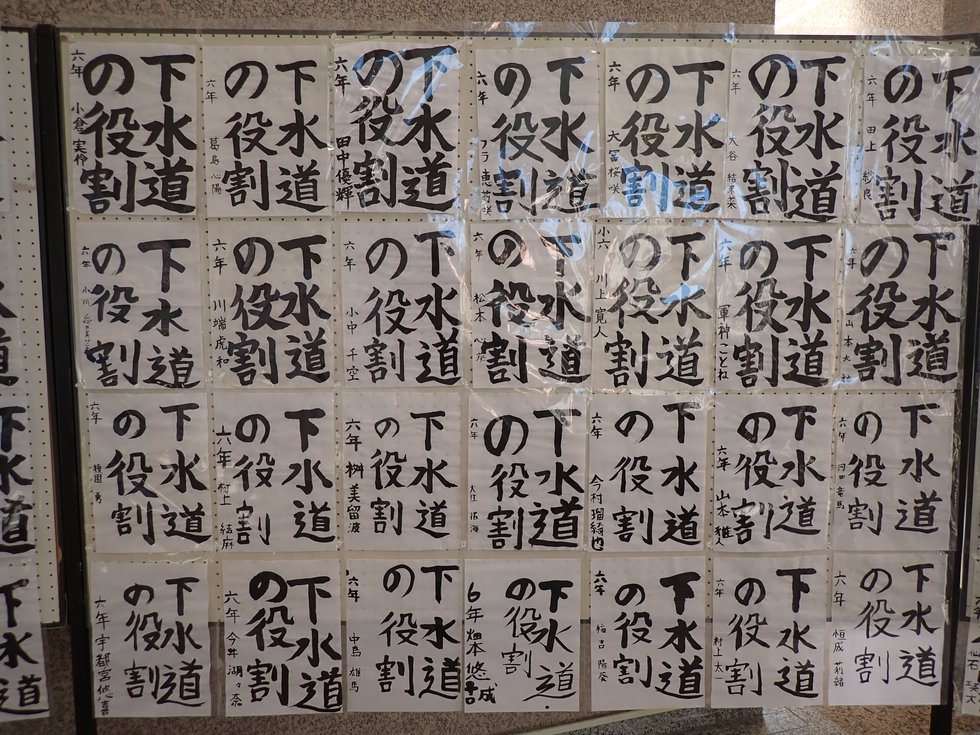 下水道
の役割
六年 小倉 実怜
下水道
の役割
六年 葛島 心陽
下水道
の役割
六年 田中優輝
下水道
の役割
六年 恵莉咲
下水道
の役割
六年 大宮桜咲
下水道
の役割
六年 大谷 結木菜
下水道
の役割
六年 田上 紗良
下水道
の役割
六年 小川
下水道
の役割
六年 川端虎和
下水道
の役割
六年 小中 千空
下水道
の役割
六年 松本
下水道
の役割
小六 川上寛人
下水道
の役割
六年 軍神ことね
下水道
の役割
六年 山本大
下水道
の役割
六年
下水道
の役割
六年 村上 結麻
下水道
の役割
六年 桝 美留波
下水道
の役割
六年
下水道
の役割
六年 今村瑠綺也
下水道
の役割
六年 山本雅人
下水道
の役割
六年
下水道
の役割
六年 宇都宮悠喜
下水道
の役割
六年 今井 湖々奈
下水道
の役割
六年 中島 雄馬
下水道
の役割
6年 畑本 悠誠
下水道
の役割
六年 陽葵
下水道
の役割
六年 村上太一
下水道
の役割
六年 恒成 莉緒